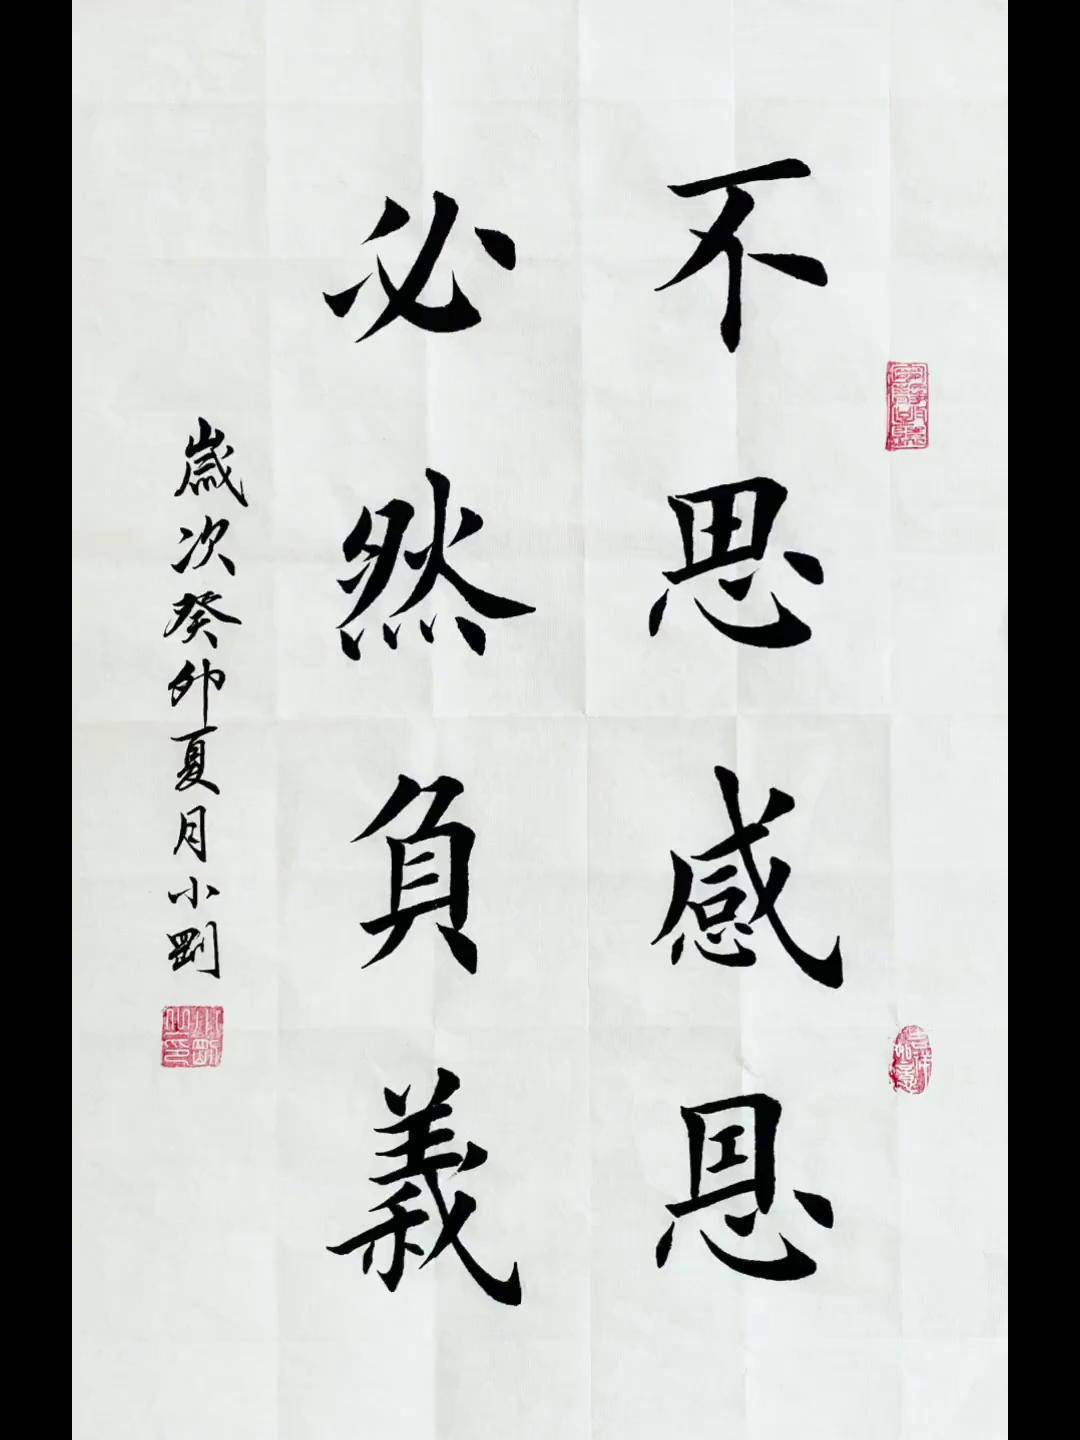 不思感恩
必然負義
歲次癸卯夏月小剛